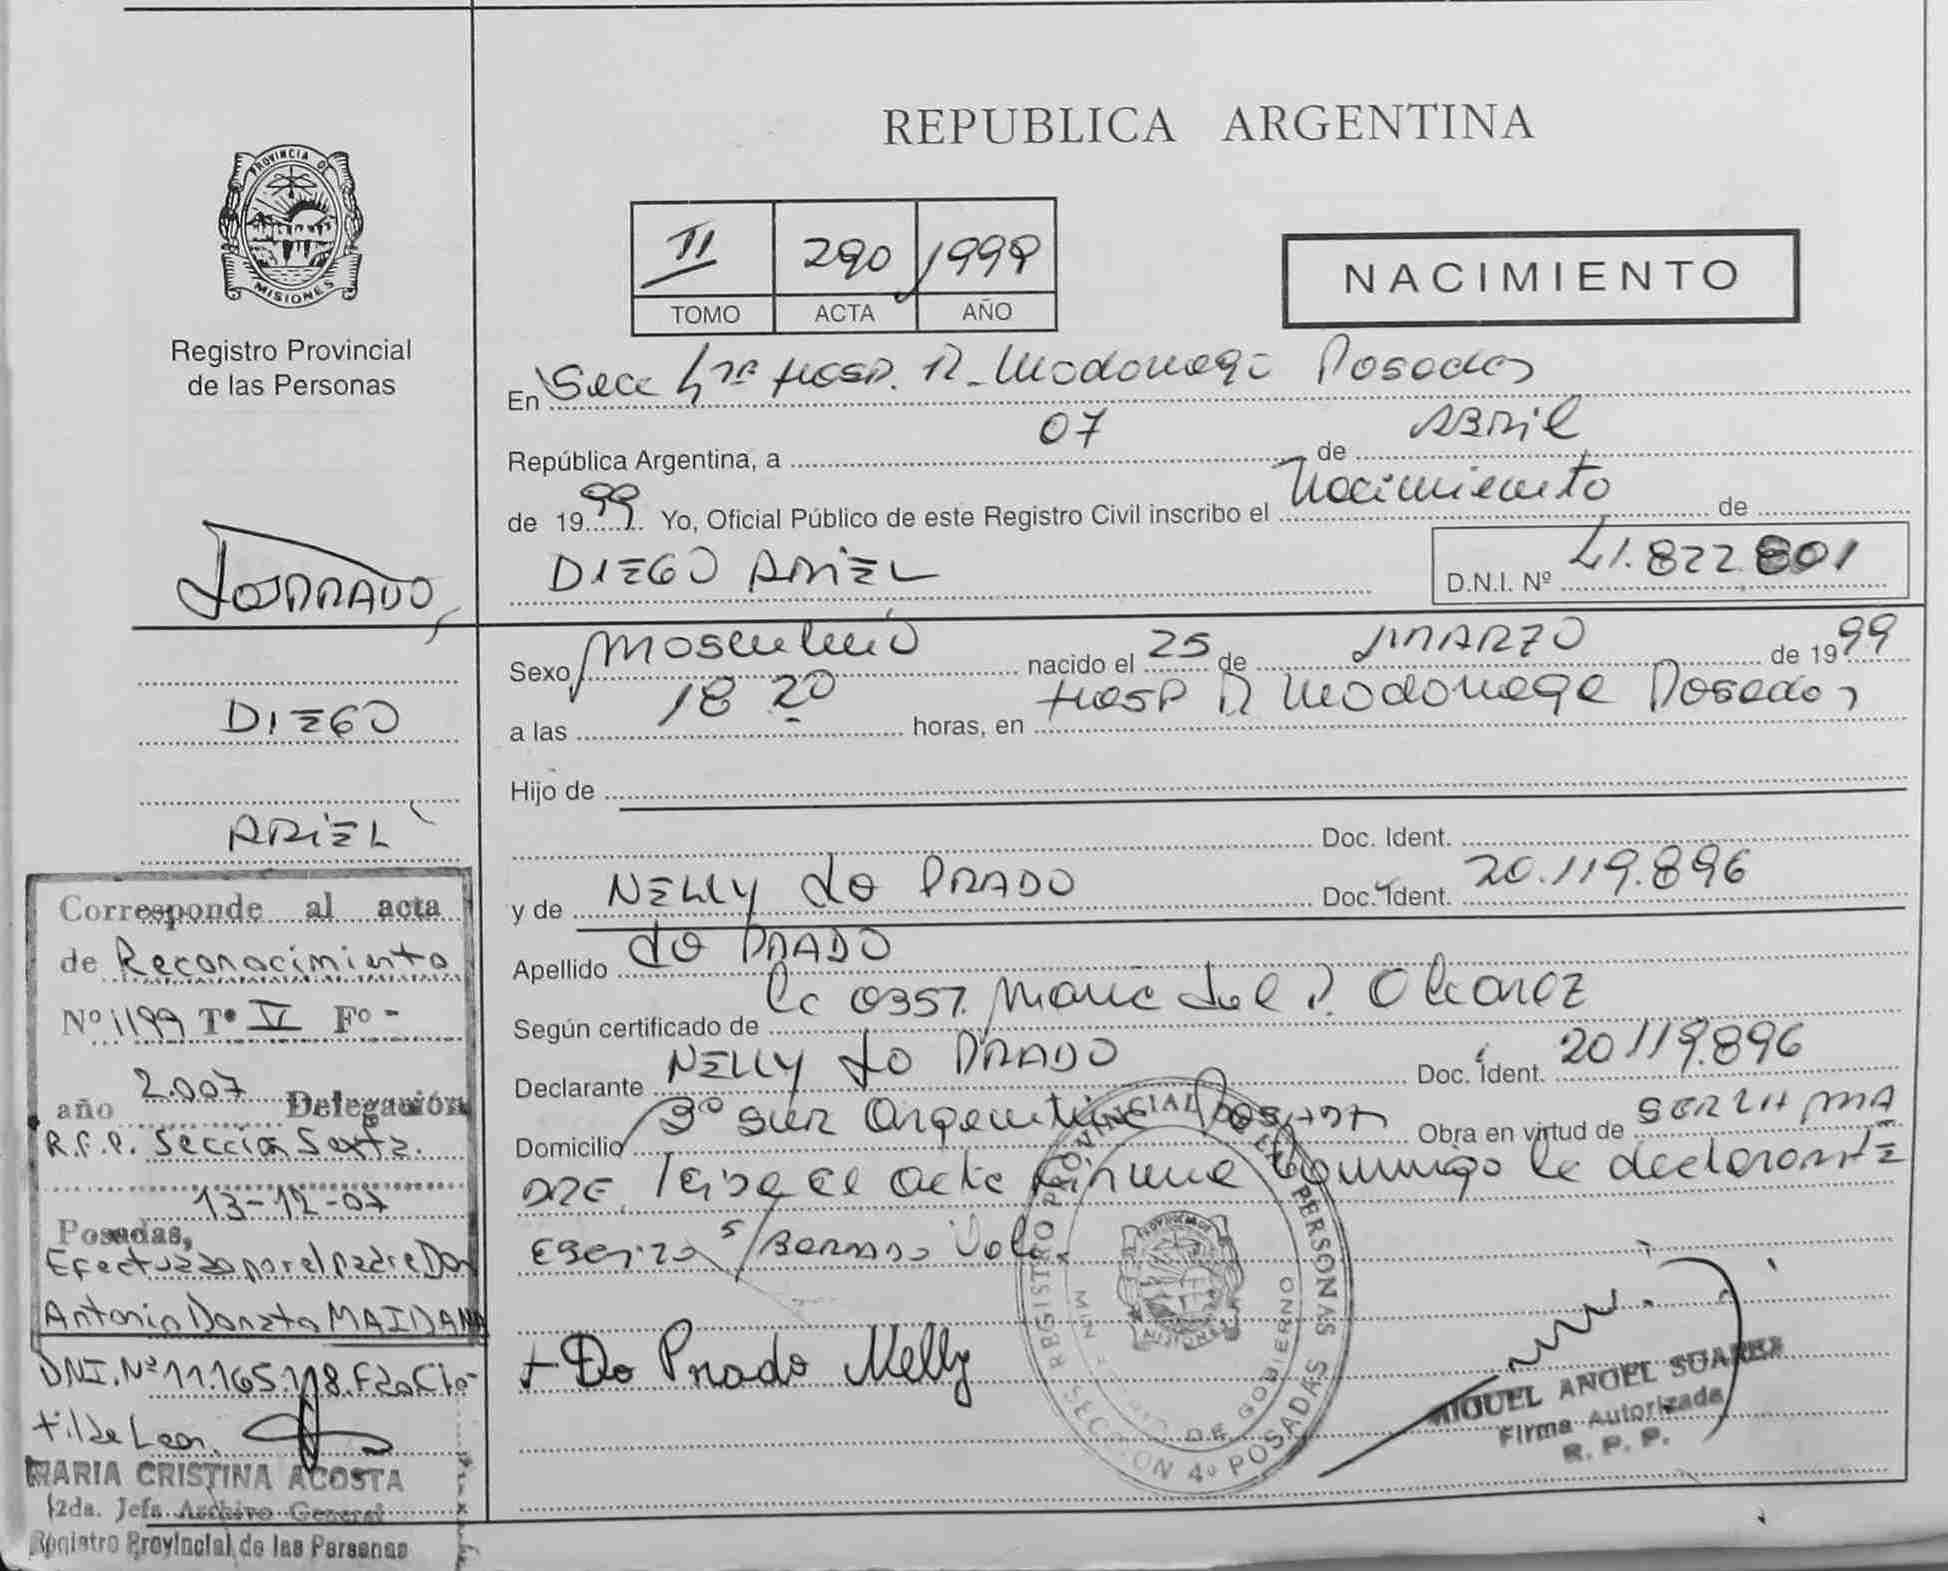 REPUBLICA ARGENTINA
PROVINCIA DE
MISIONES
Registro Provincial
de las Personas
II 290 1999
TOMO ACTA AÑO
NACIMIENTO
En Secc 4ta Hosp. R. Madariaga Posadas
República Argentina, a 07 de Abril
de 1999 Yo, Oficial Público de este Registro Civil inscribo el Nacimiento de
DIEGO ARIEL
D.N.I. Nº 41.822.801
do PRADO
DIEGO
ARIEL
Sexo Masculino nacido el 25 de MARZO de 1999
a las 18 20 horas, en Hosp R Madariaga Posadas
Hijo de
Doc. Ident.
y de NELLY do PRADO Doc. Ident. 20.119.896
Apellido do PRADO
Según certificado de 0357. Maria del
Declarante NELLY do PRADO Doc. Ident. 20119.896
Domicilio Posadas Obra en virtud de SER LA MA
DRE. Leida el acta firma conmigo la declarante
DO PRADO NELLY
REGISTRO PROVINCIAL DE LAS PERSONAS
DE GOBIERNO
SECCION 4º POSADAS
MIGUEL ANGEL SUAREZ
Firma Autorizada
R. P. P.
Corresponde al acta
de Reconocimiento
Nº 1199 Tº V Fº -
año 2.007 Delegación
R.P.P. Sección Sexta.
13-12-07
Posadas,
Efectuado por el padre Don
Antonio Donato MAIDANA
DNI. Nº 11.165.118.
MARIA CRISTINA ACOSTA
2da. Jefa Archivo General
Registro Provincial de las Personas